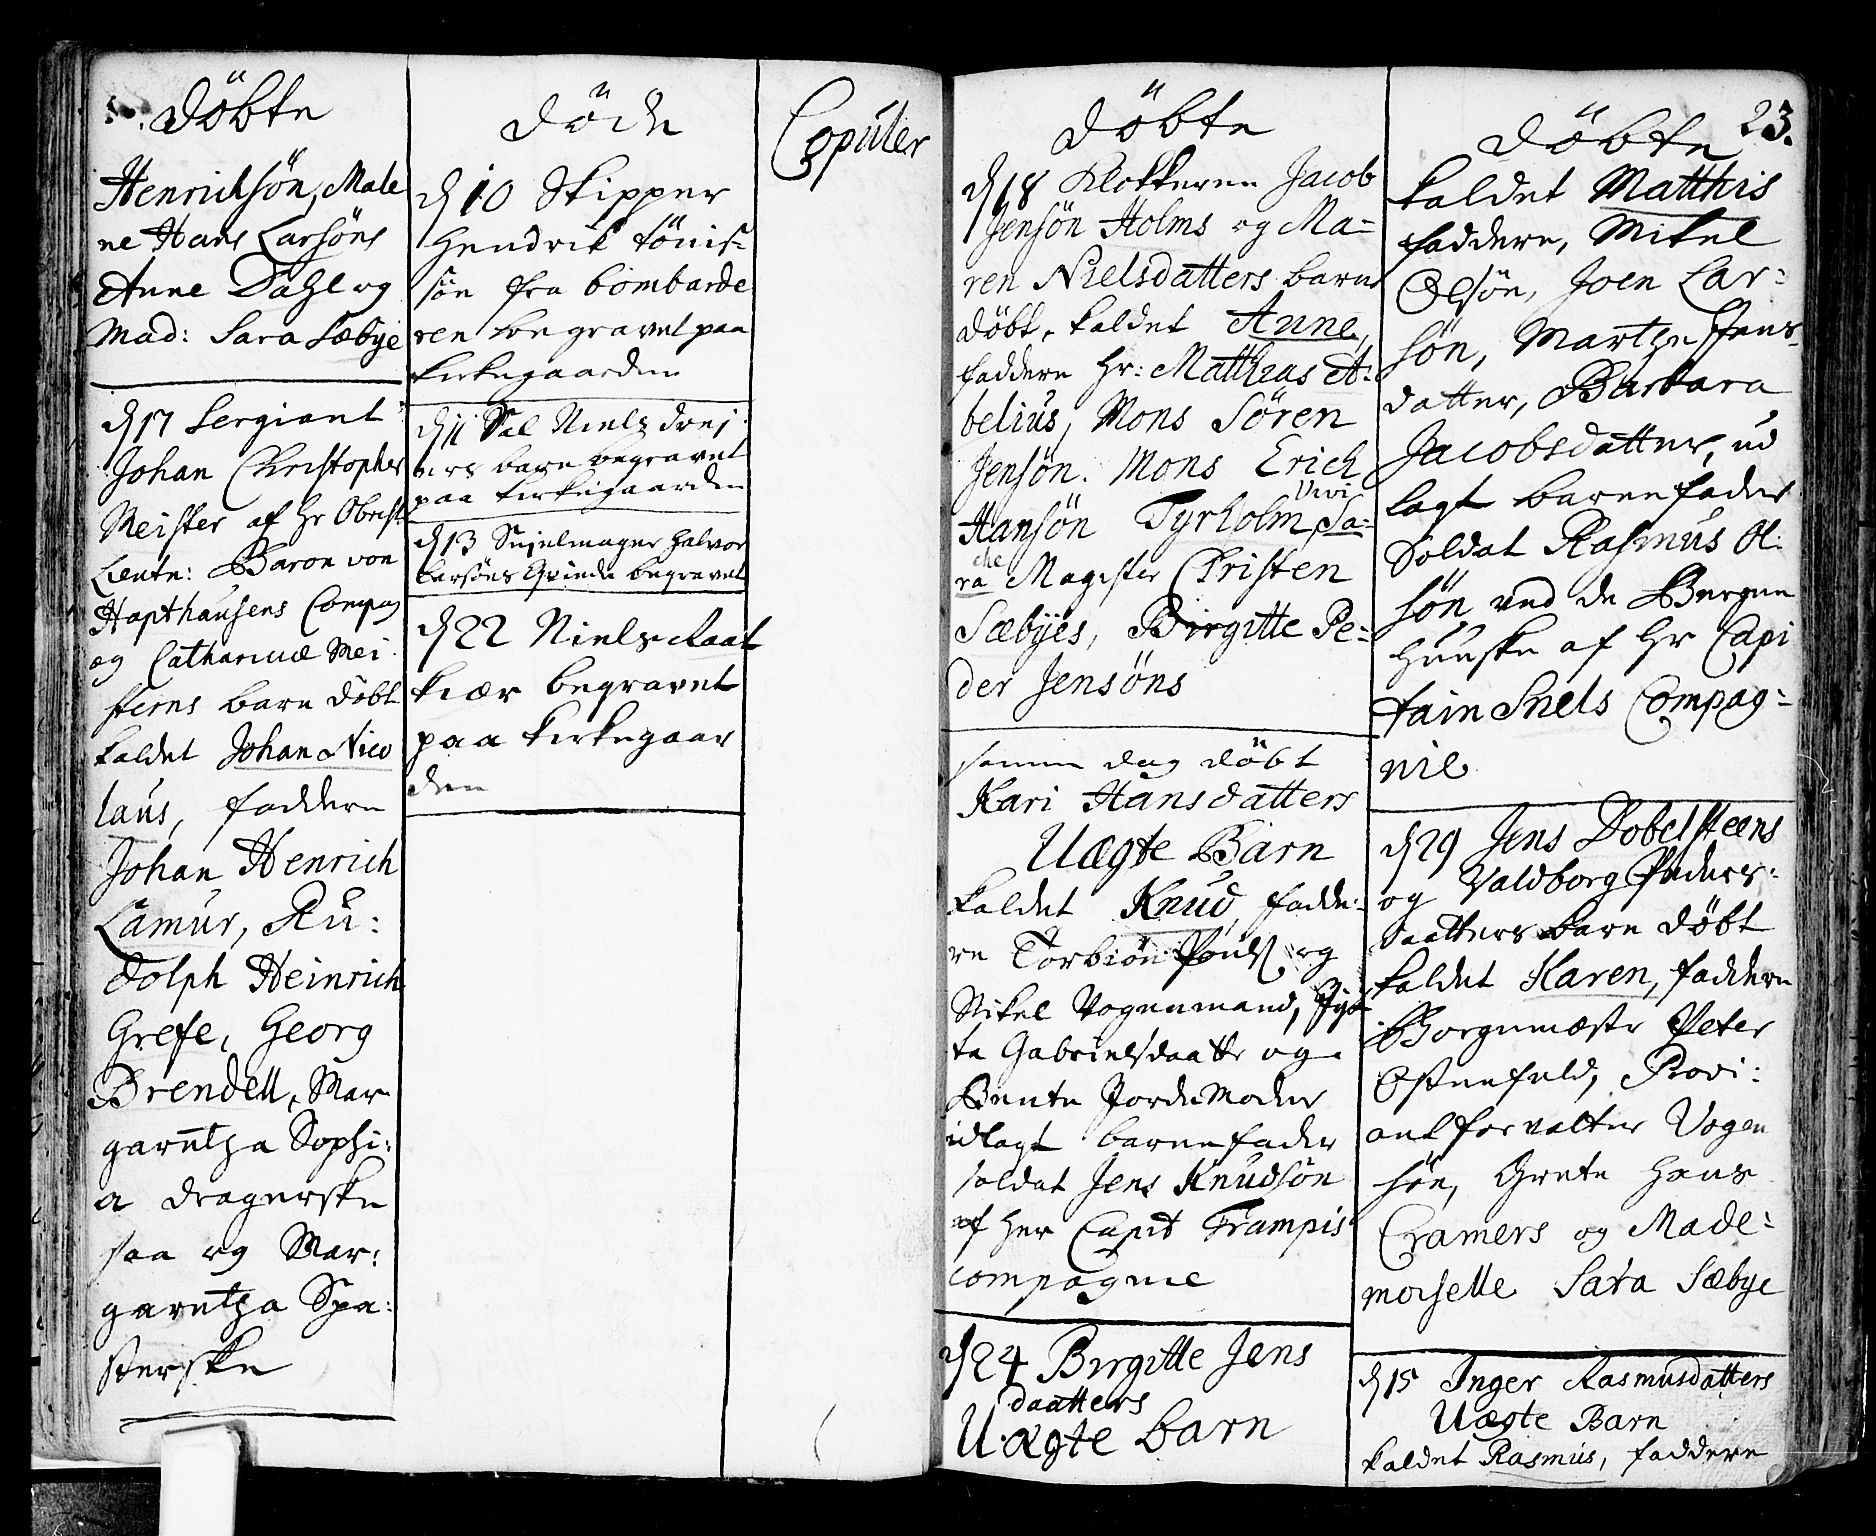 Döbte
Henrichsön, Male
ne Hans Larsöns
Anne Dahl og
Mad: Sara Sæbye
d 17 Sergiant
Johan Christopher
Meister af Hr Obrist
Lieutn: Baron von
Hapthausens Compag
og Catharinæ Mei
sterns barn döbt
kaldet Johan Nico
laus, faddere
Johan Henrich
Lamur, Ru:
dolph Heinrich
Grefe, Georg
Brendell, Mar
garetha Sophi:
a Dragerske
saa og Mar:
garetha Spa:
sterske
Döde
d 10 Skipper
Hendrik tönis:
sön fra bombarde
ren begravet paa
kirkegaarden
d 11 Sal Niels Drej
ers barn begravet
paa kirkegaarden
d 13 Sejelmager Halvor
Larsöns Qvinde begravet
d 22 Niels Raat
kiær begravet
paa kirkegaar
den
Copuler
Döbte
d 18 Klokkeren Jacob
Jensön Holms og Ma=
ren Nielsdatters barn
döbt, kaldet Anne,
faddere Hr: Matthias A:
belius, Mons Sören
Jensön. Mons Erich
Hansön Tyrholm, Sa=
Vivi
che
ra Magister Christen
Sæbyes, Birgitte Pe=
der Jensöns
samme dag döbt
Kari Hansdatters
Uægte Barn
kaldet Knud, fadde:
re Torbiön Pouls og
Mikel Vognmand,
te Gabrielsdaatter og
Bente Jordemoder
udlagt barnefader
soldat Jens Knudsön
af Her Capit Trampis
compagnie
d 24 Birgitte Jens
daatters
Uægte barn
23.
Döbte
kaldet Matthis
faddere, Mikel
Olsön, Joen Lar:
sön, Marthe Hans
datter, Barbara
Jacobsdatter, ud
lagt barnefader
Soldat Rasmus Ol:
sön ved de Bergen
huuske af Hr Capi
tain Snels Compag=
nie
d 29 Jens Dobelsteens
og Valdborg Peders:
daatters barn döbt
kaldet Karen, faddere
Borgemæstr Peter
Ostenfeld, Provi:
antforvalter Vogen
sön, Grete Hans
Cramers og Made:
moiselle Sara Sæbye
d 15 Inger Rasmusdatters
Uægte Barn
kaldet Rasmus, faddere